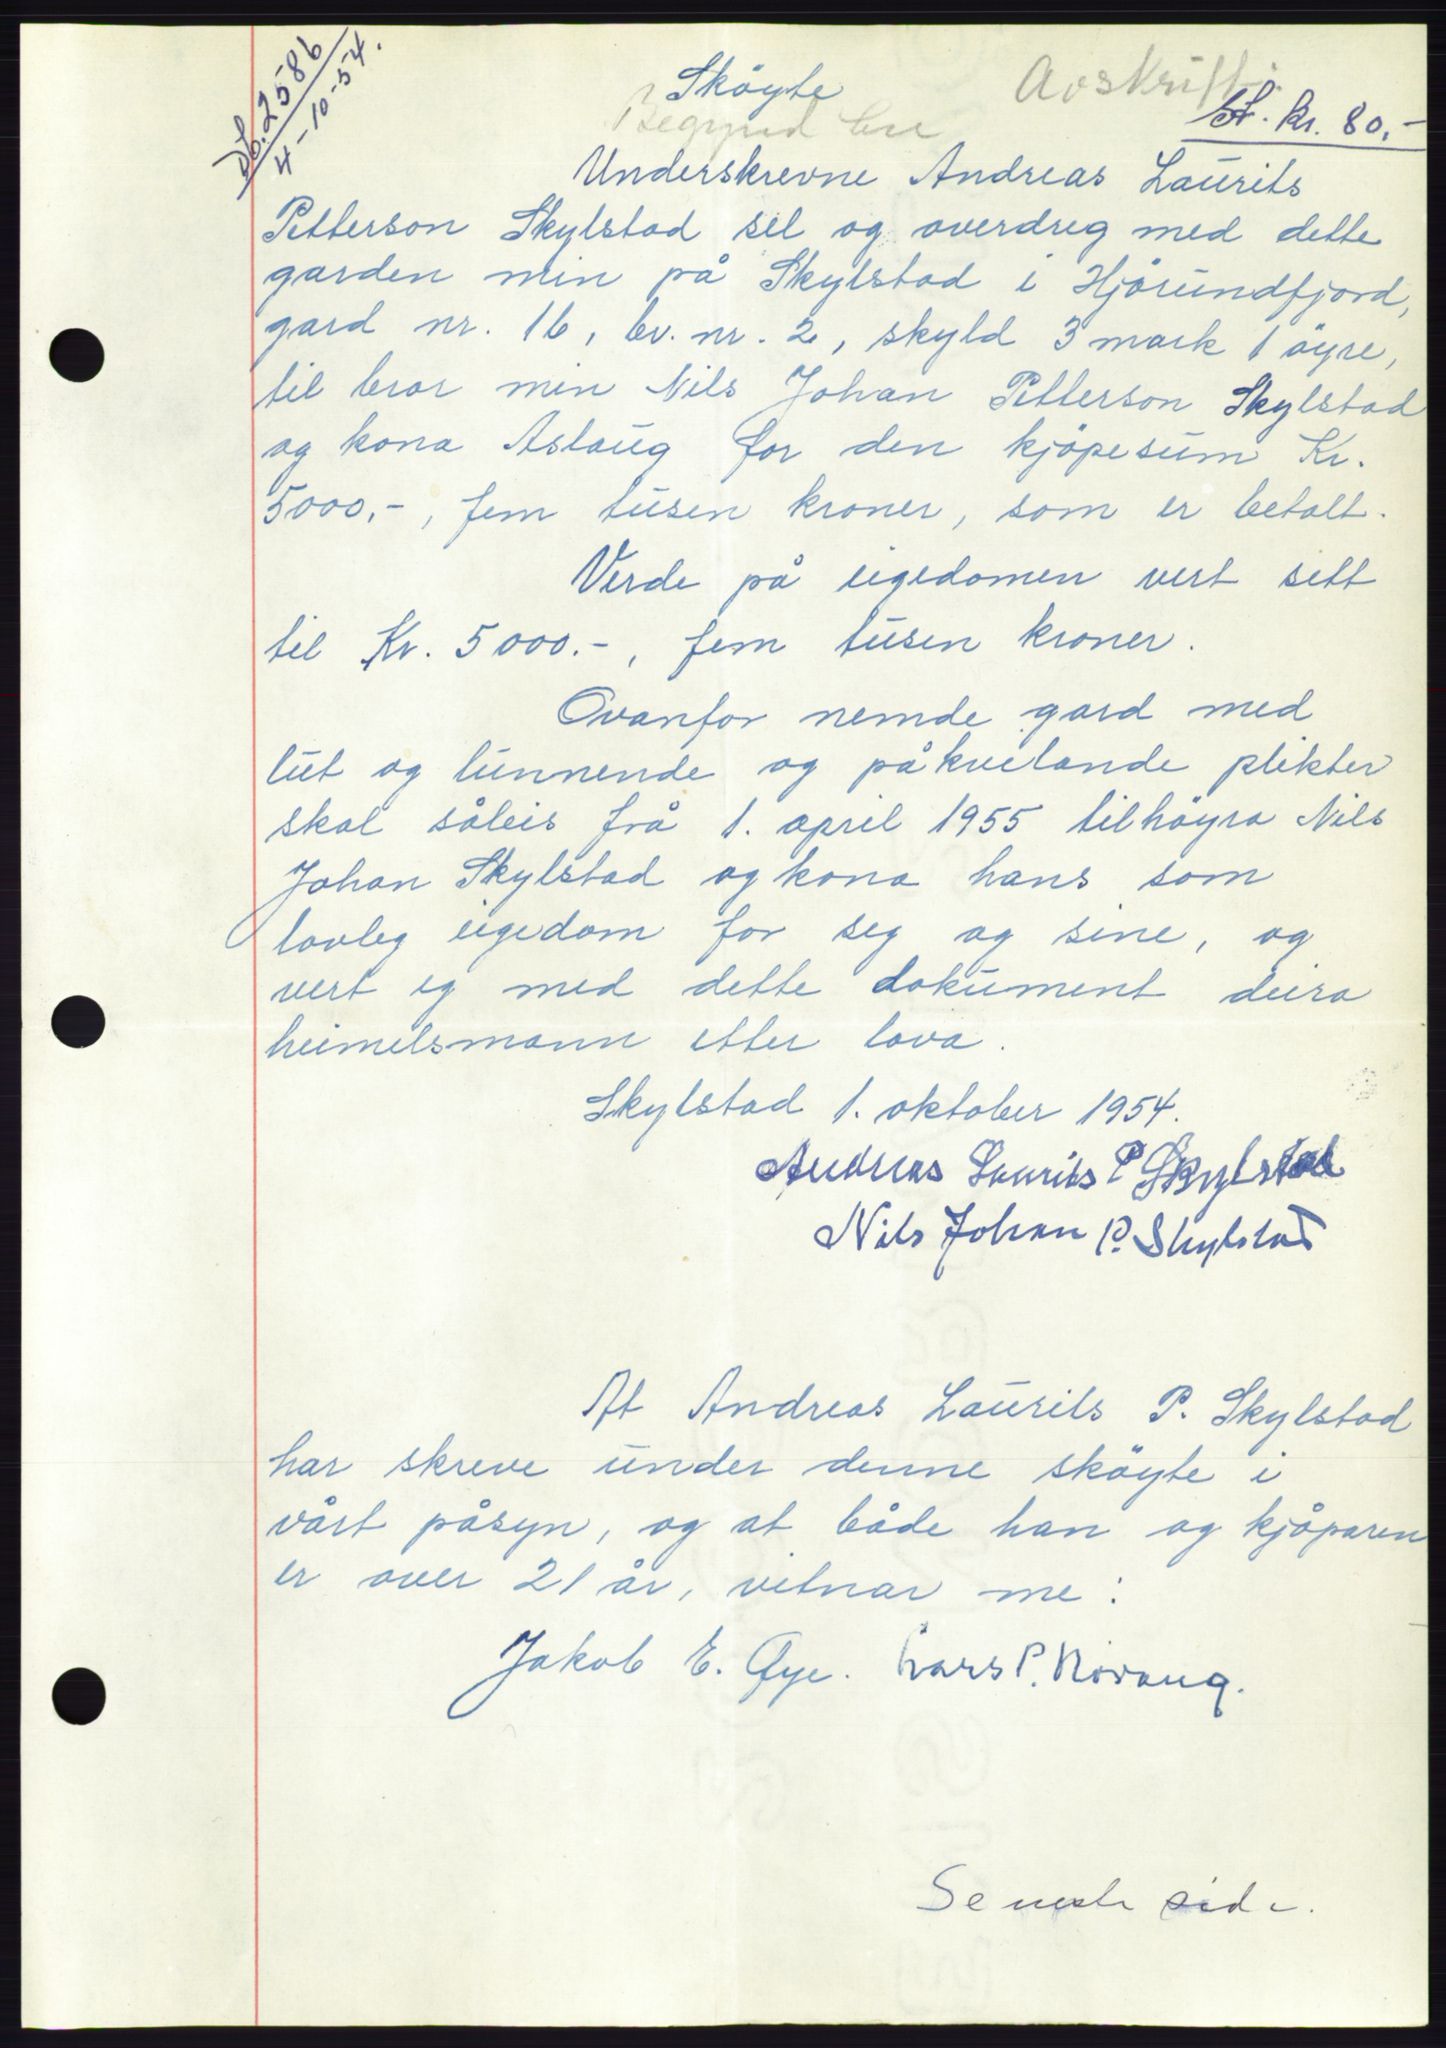 Db. 2586
4-10-54.
Avskrift:
Sköyte
St. kr. 80.-
Underskrevne Andreas Laurits
Petterson Skylstad sel og overdreg med dette
garden min på Skylstad i Hjörundfjord,
gard nr. 16, br. nr. 2, skyld 3 mark 1 öyre,
til bror min Nils Johan Petterson Skylstad
og kona Aslaug for den kjöpesum Kr.
5000.-, fem tusen kroner, som er betalt.
Verde på eigedomen vert sett
til Kr. 5000.-, fem tusen kroner.
Ovanfor nemde gard med
lut og lunnende og påkvilande plikter
skal såleis frå 1. april 1955 tilhöyra Nils
Johan Skylstad og kona hans som
lovleg eigedom for seg og sine, og
vert eg med dette dokument deira
heimelsmann etter lova.
Skylstad 1. oktober 1954.
Andreas Laurits P Skylstad
Nils Johan P. Skylstad
At Andreas Laurits P. Skylstad
har skreve under denne sköyte i
vårt påsyn, og at både han og kjöparen
er over 21 år, vitnar me:
Jakob E. Øye. Lars P. Norang.
Se neste side.